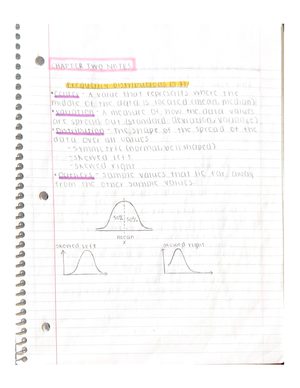 CHAPTER TWO NOTES
Frequency Distributions
• Center - A value that represents where the
middle of the data is located (mean, median)
• Variation - A measure of how the data values
are spread out (standard deviation,
• Distribution - the shape of the spread of the
data over all values
- Symmetric (normal, bell shaped)
- skewed left
- skewed right
• Outliers - Sample values that lie far away
from the other sample values
50% 50%
mean
x
skewed left
skewed right